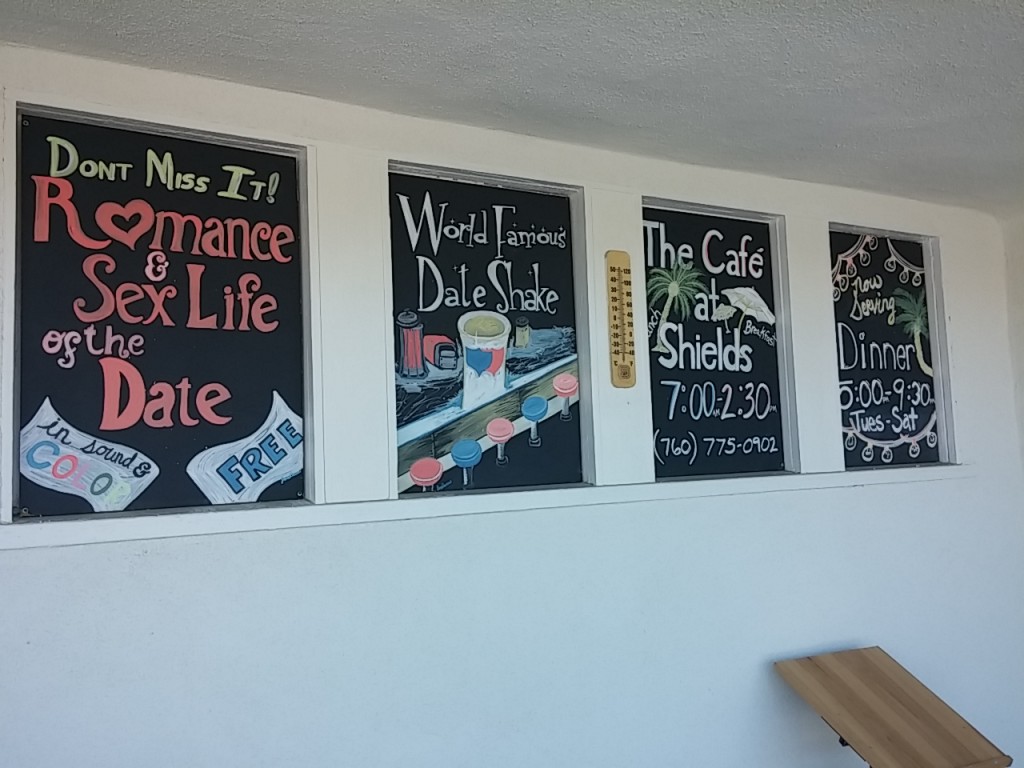 DONT MISS IT!
ROMANCE
&
SEX LIFE
of the
DATE
in sound &
COLOR
FREE
WORLD FAMOUS
DATE SHAKE
The Café
at
Lunch
Breakfast
Shields
7:00AM-2:30PM
(760) 775-0902
now
serving
Dinner
5:00PM-9:30PM
Tues-Sat